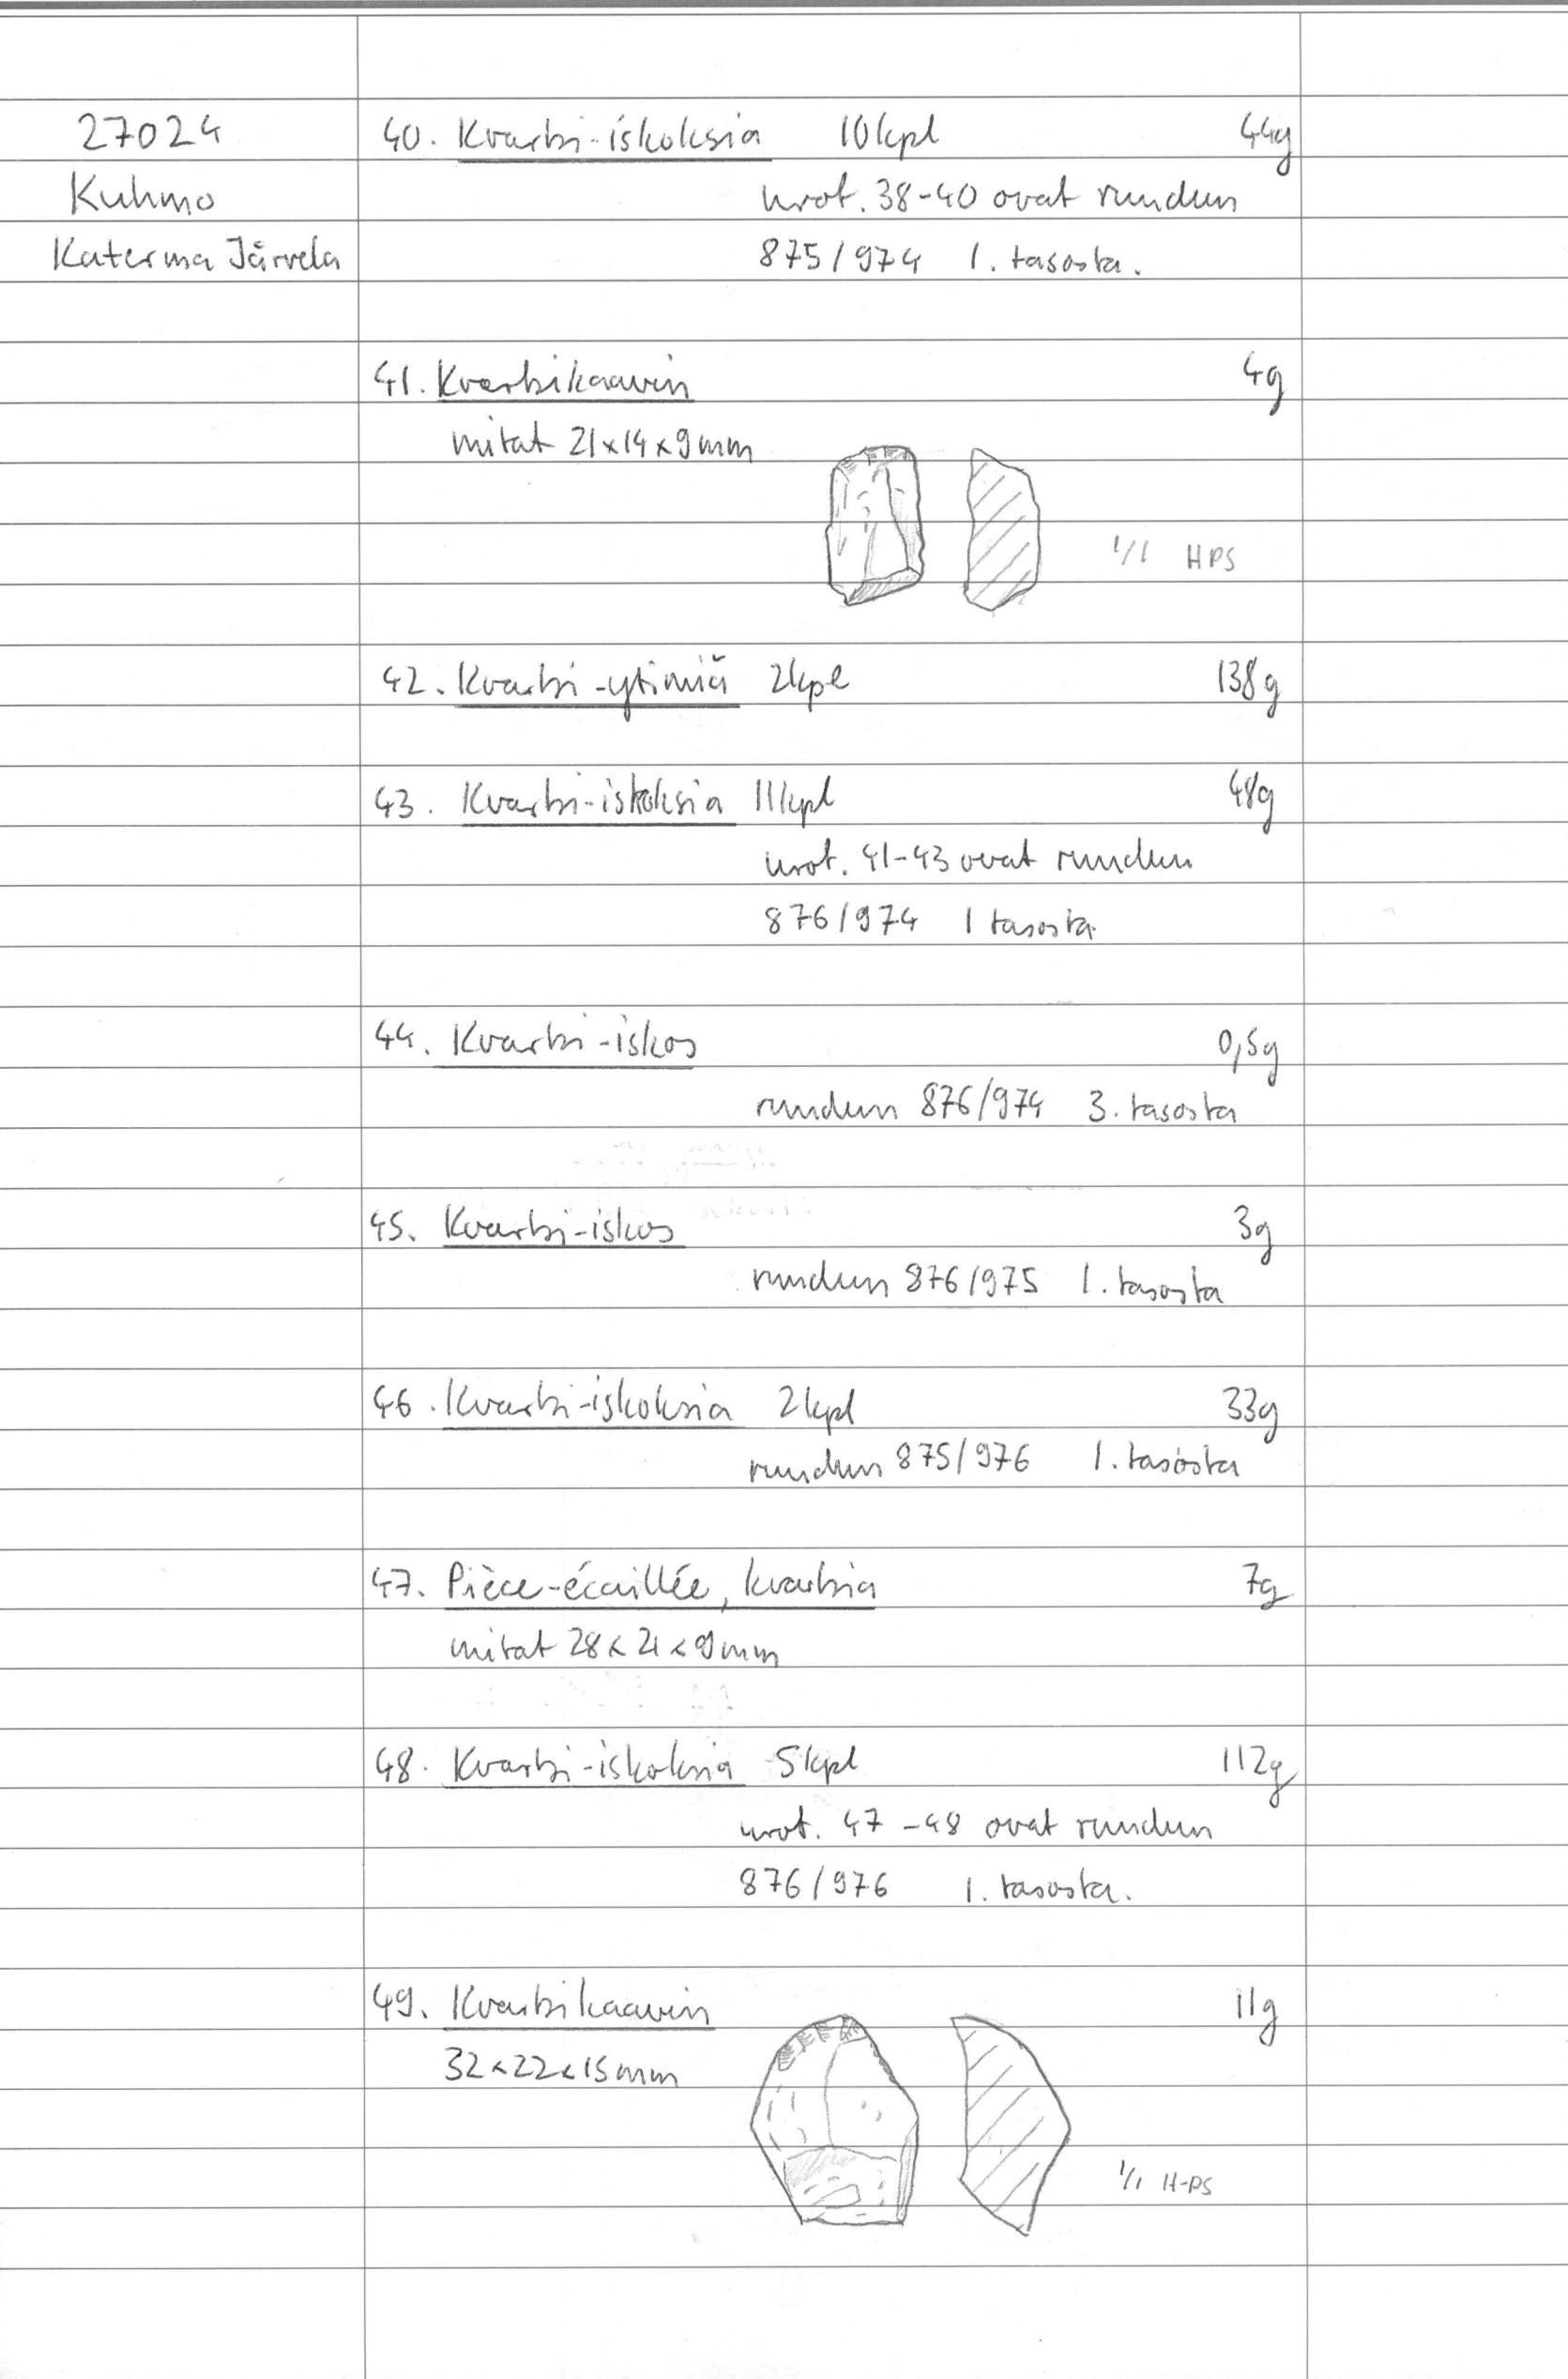 27024
Kuhmo
Katerma Järvelä
40. Kvartsi-iskoksia 10 kpl 44g
nrot. 38-40 ovat ruudun
875/974 1. tasosta.
41. Kvartsikaavin 4g
mitat 21x14x9mm
1/1 HPS
42. Kvartsi-ytimiä 2kpl 138g
43. Kvartsi-iskoksia 11kpl 48g
nrot. 41-43 ovat ruudun
876/974 1 tasosta
44. Kvartsi-iskos 0,5g
ruudun 876/974 3. tasosta
45. Kvartsi-iskos 3g
ruudun 876/975 1. tasosta
46. Kvartsi-iskoksia 2kpl 33g
ruudun 875/976 1. tasosta
47. Pièce-écaillée, kvartsia 7g
mitat 28x21x9mm
48. Kvartsi-iskoksia 5kpl 112g
nrot. 47-48 ovat ruudun
876/976 1. tasosta.
49. Kvartsikaavin 11g
32x22x15mm
1/1 H-PS